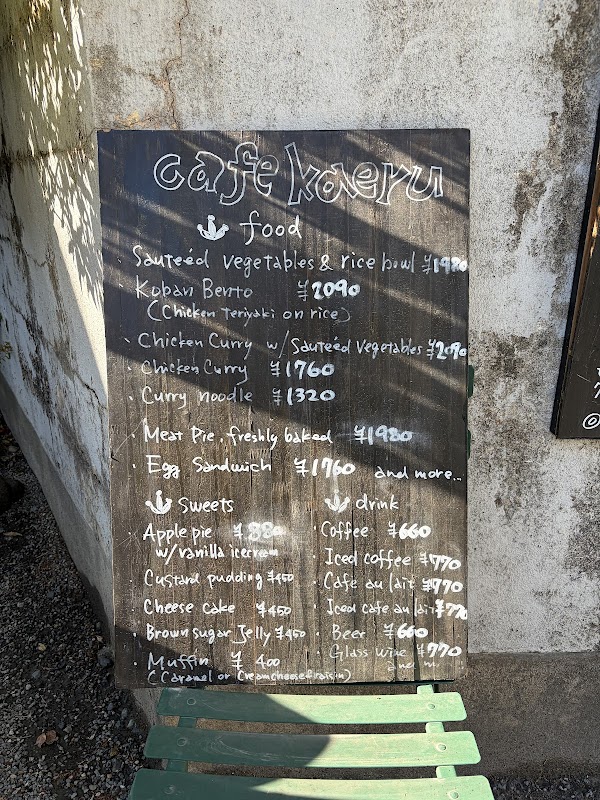 cafe kaeru
food
Sauteéd vegetables & rice bowl ¥1980
・Koban Bento ¥2090
(Chicken Teriyaki on rice)
・Chicken Curry w/ Sauteéd Vegetables ¥2090
・Chicken Curry ¥1760
・Curry noodle ¥1320
・Meat Pie, freshly baked ¥1980
・Egg Sandwich ¥1760 and more...
sweets
・Apple pie ¥880
w/vanilla icecream
・Custard pudding ¥450
・Cheese cake ¥450
・Brown sugar Jelly ¥450
・Muffin ¥400
(Caramel or Creamcheese&raisin)
drink
・Coffee ¥660
・Iced coffee ¥770
・Cafe au lait ¥770
・Iced cafe au lait ¥770
・Beer ¥660
・Glass wine ¥770
and m.